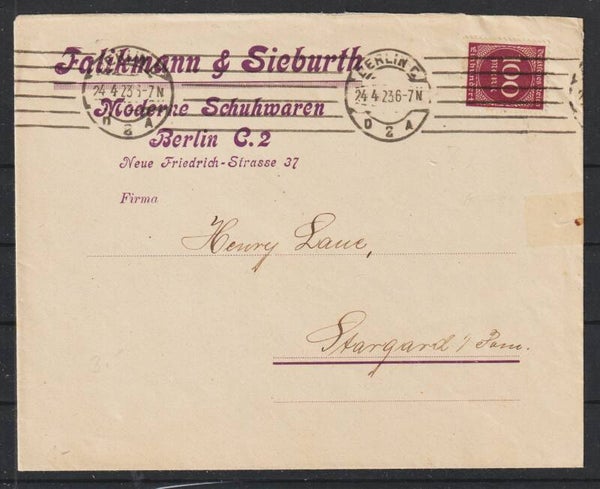 Falikmann & Sieburth
Moderne Schuhwaren
Berlin C.2
Neue Friedrich-Strasse 37
BERLIN C
24.4.23 6-7 N
2
BERLIN C
24.4.23 6-7 N
2
100
Firma
Henry Laue,
Stargard i/ Pom.